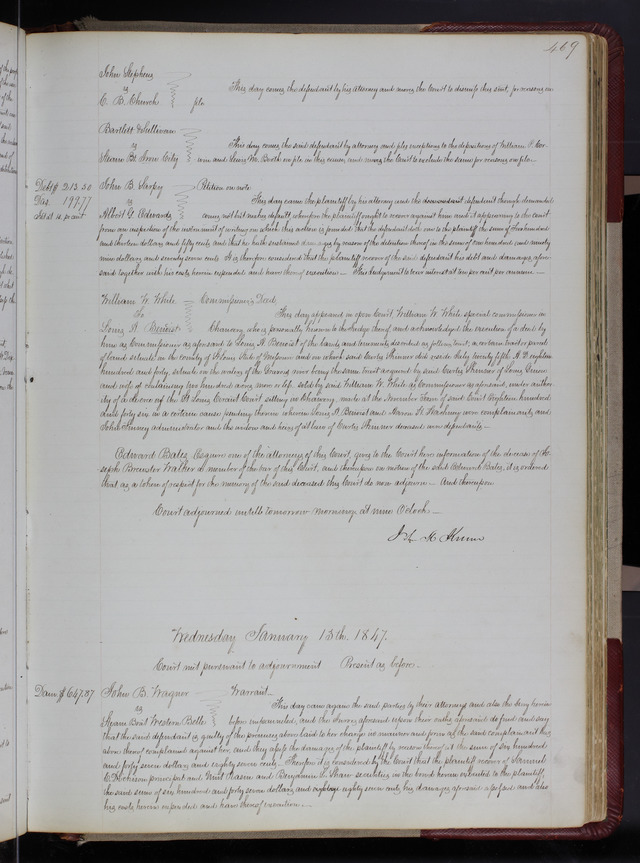 469
John Stephens
vs
C. B. Church pltr
This day comes the defendant by his attorney and moves the Court to dismiss this suit, for reasons on
Bartlett & Sullivan
vs
Steam Bt Iron City
This day comes the said defendant by attorney and files exceptions to the depositions of William
and Henry M. Booth on file in this cause, and moves the Court to exclude the same for reasons on file.
Debt $ 213.50
Das. 199.77
John B. Sarpy
vs
Albert G. Edwards
Petition on note
This day came the plaintiff by his attorney and the defendant though demanded
comes not but makes default, wherefore the plaintiff ought to recover against him and it appearing to the court
from an inspection of the instrument of writing on which this action is founded that the defendant doth owe to the plaintiff the sum of two hundred
and thirteen dollars and fifty cents, and that he hath sustained damages by reason of the detention thereof in the sum of one hundred and ninety
nine dollars and seventy seven cents It is therefore considered that the plaintiff recover of the said defendant his debt and damages afore-
said together with his costs herein expended and have thereof execution — This judgment to bear interest at ten per cent per annum —
William W. White
to
Louis A Benoist
Commissioner's Deed,
This day appeared in open Court William W. White special commissioner in
Chancery, who is personally known to the Judge thereof and acknowledged the execution of a deed by
him as Commissioner as aforesaid to Louis A Benoist of the lands and tenements described as follows, to wit; a certain tract or parcel
of land situate in the county of St Louis State of Missouri and on which said Curtis Skinner did reside July twenty fifth A D eighteen
hundred and forty, situate on the waters of the
and wife containing two hundred acres more or less, sold by said William W. White as Commissioner as aforesaid, under author
ity of a decree of the St Louis Circuit Court sitting in Chancery, made at the November Term of said Court Eighteen hundred
and forty six in a certain cause pending therein wherein Louis A Benoist and were complainants and
John administrator and the widow and heirs of Curtis Skinner deceased were defendants —
Edward Bates Esquire one of the attorneys of this Court, gives to the Court here information of the decease of Jo-
seph Brewster Walker a member of the bar of this Court, and thereupon on motion of the said Edward Bates, it is ordered
that as a token of respect for the memory of the said deceased this Court do now adjourn — And thereupon
Court adjourned untill tomorrow morning at nine O'clock —
Wednesday January 13th. 1847.
Court met pursuant to adjournment Present as before.
Dam $ 647.87
John B. Wagner
vs
Steam Boat Western Belle
Warrant.
This day came again the said parties by their attorneys and also the Jury herein
before empannelled, and the Jurors aforesaid upon their oaths aforesaid do find and say
that the said defendant is guilty of the premises above laid to her charge in manner and form as the said complainant hath
above thereof complained against her, and they assess the damages of the plaintiff by reason thereof at the sum of six hundred
and forty seven dollars and eighty seven cents. Therefore it is considered by the Court that the plaintiff recover of Samuel
principal and and Benjamin F. Shaw securities in the bond herein executed to the plaintiff,
the said sum of six hundred and forty seven dollars and eighty seven cents, his damages aforesaid assessed and also
his costs herein expended and have thereof execution —